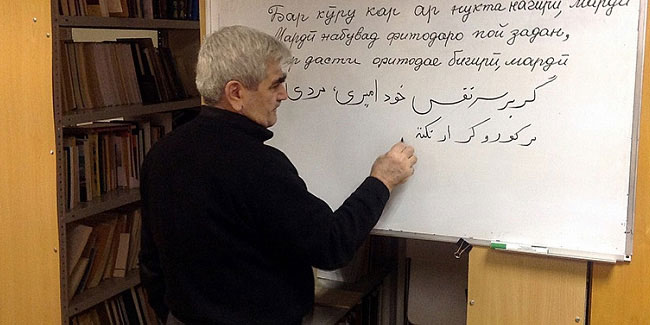 Бар кӯру кар ар нукта нагирӣ, мардӣ
Мардӣ набувад фитодаро пой задан,
дасти фитодае бигирӣ, мардӣ
گر بر سر نفس خود امیری، مردی
بر کور و کر ار نکتة